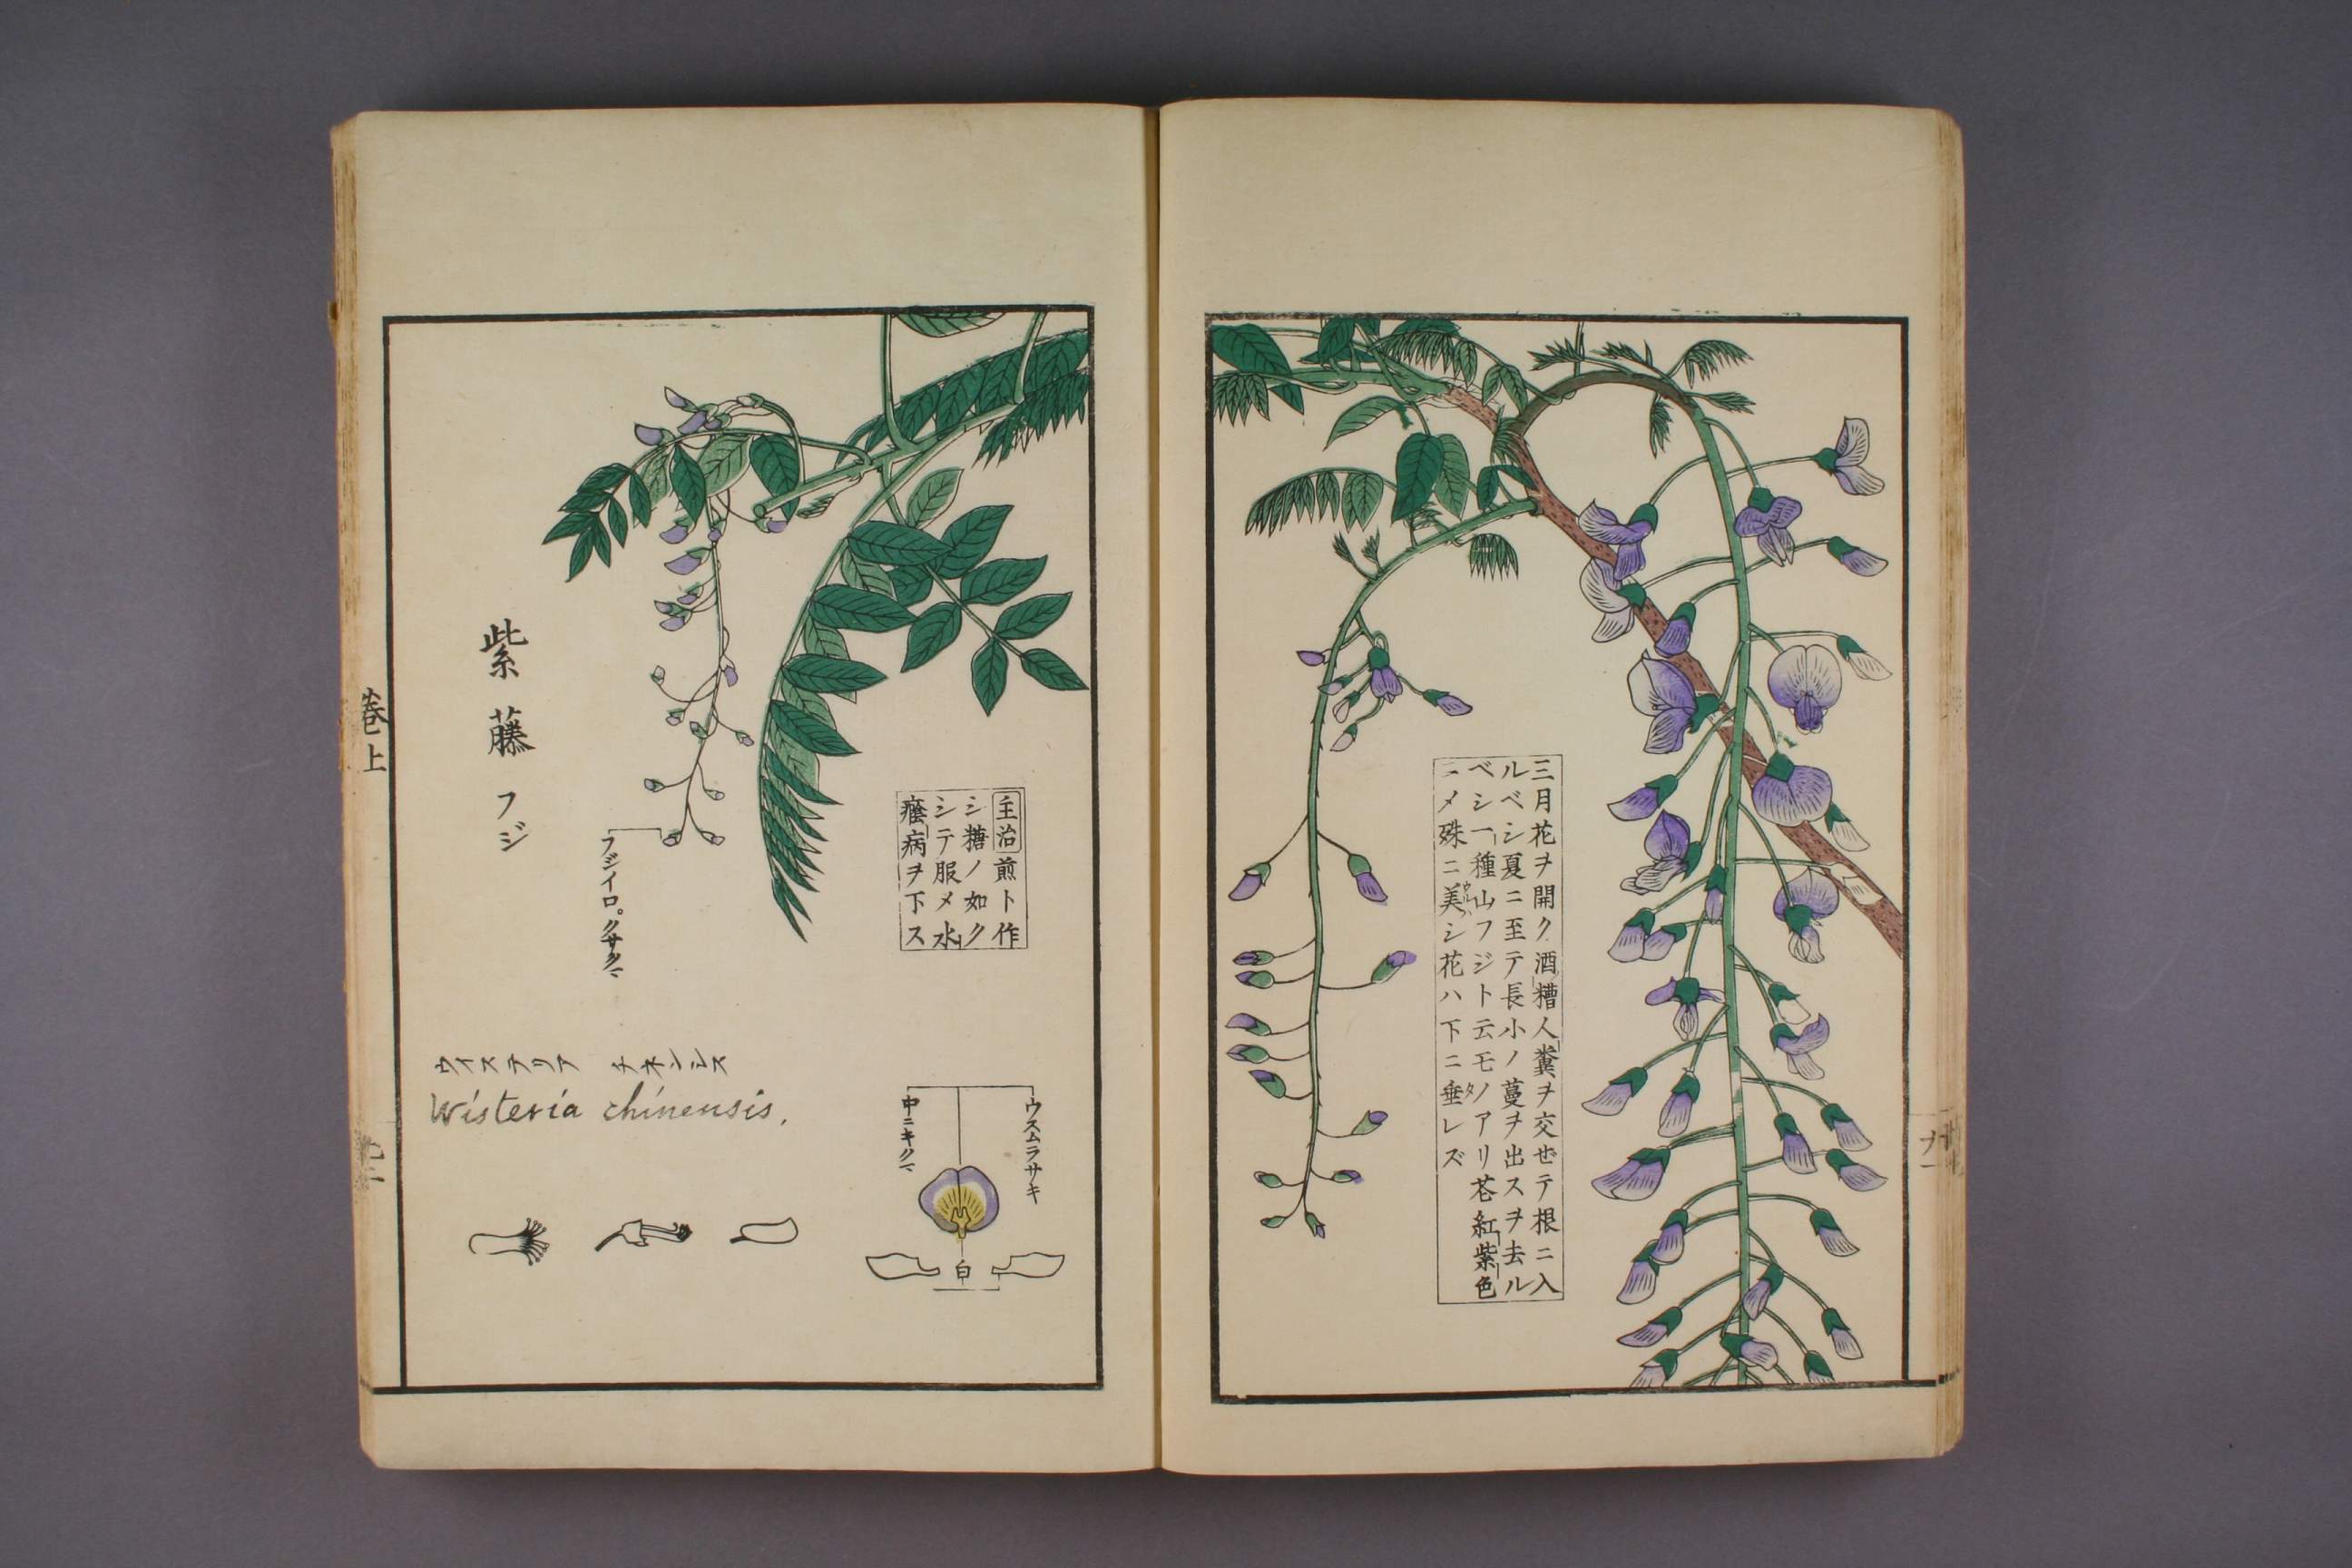 三月花ヲ開ク酒糟人糞ヲ交ゼテ根ニ入
ルベシ夏ニ至テ長小ノ蔓ヲ出スヲ去ル
ベシ一種山フジト云モノアリ花紅紫色
ニメ殊ニ美シ花ハ下ニ垂レズ
主治煎ト作
シ糖ノ如ク
シテ服メ水
癊病ヲ下ス
ウスムラサキ
中ニキクマ
白
フジイロ。クサクマ
紫藤 フジ
ウイステリア チネンシス
Wisteria chinensis.
巻上